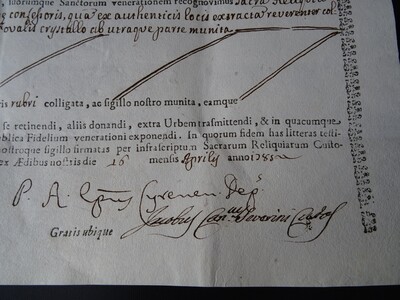 suorumque Sanctorum venerationem recognovimus Sacra Reliquia
confessoris, quia ex authenticis locis extracta reverenter col
ovalis crystallo ab utraque parte munita
ris rubri colligata, ac sigillo nostro munita, eamque
se retinendi, aliis donandi, extra Urbem trasmittendi, & in quacumque
blica Fidelium venerationi exponendi. In quorum fidem has litteras testi-
nostroque sigillo firmatas per infrascriptum Sacrarum Reliquiarum Custo-
ex Ædibus nostris die 16 mensis Aprilis anno
P. A. Cyrenen. Dep.
Gratis ubique Jacobus Can. Severini Custos